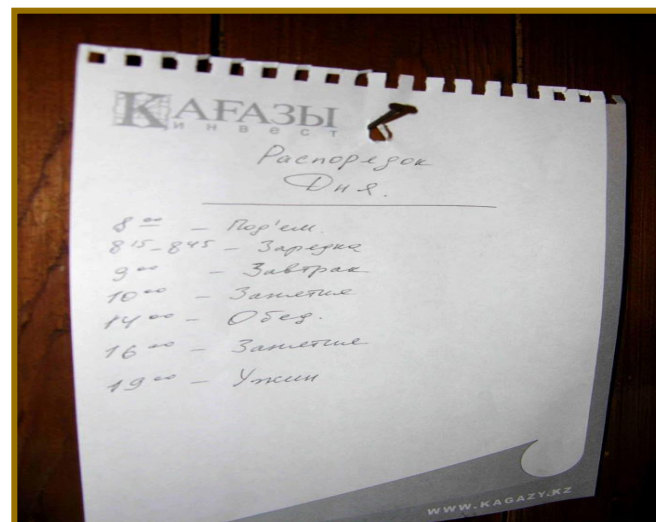 КАҒАЗЫ
ИНВЕСТ
Распоредок
Дня.
8 00 – Под'ем.
8 15 – 8 45 – Заредка
9 00 – Завтрак
10 00 – Занетие
14 00 – Обед.
16 00 – Занетие
19 00 – Ужин
WWW.KAGAZY.KZ